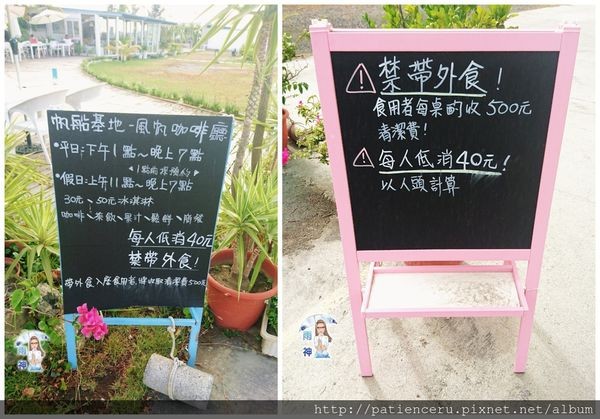 帆船基地-風帆咖啡廳
•平日:下午1點~晚上7點
(1點前採預約)
•假日:上午11點~晚上7點
30元~50元冰淇淋
咖啡、茶飲、果汁、鬆餅、簡餐
每人低消40元
禁帶外食!
帶外食入座食用者,將收取清潔費500元
雨神
禁帶外食!
食用者每桌酌收500元
清潔費!
每人低消40元!
以人頭計算
雨神
http://patienceru.pixnet.net/album